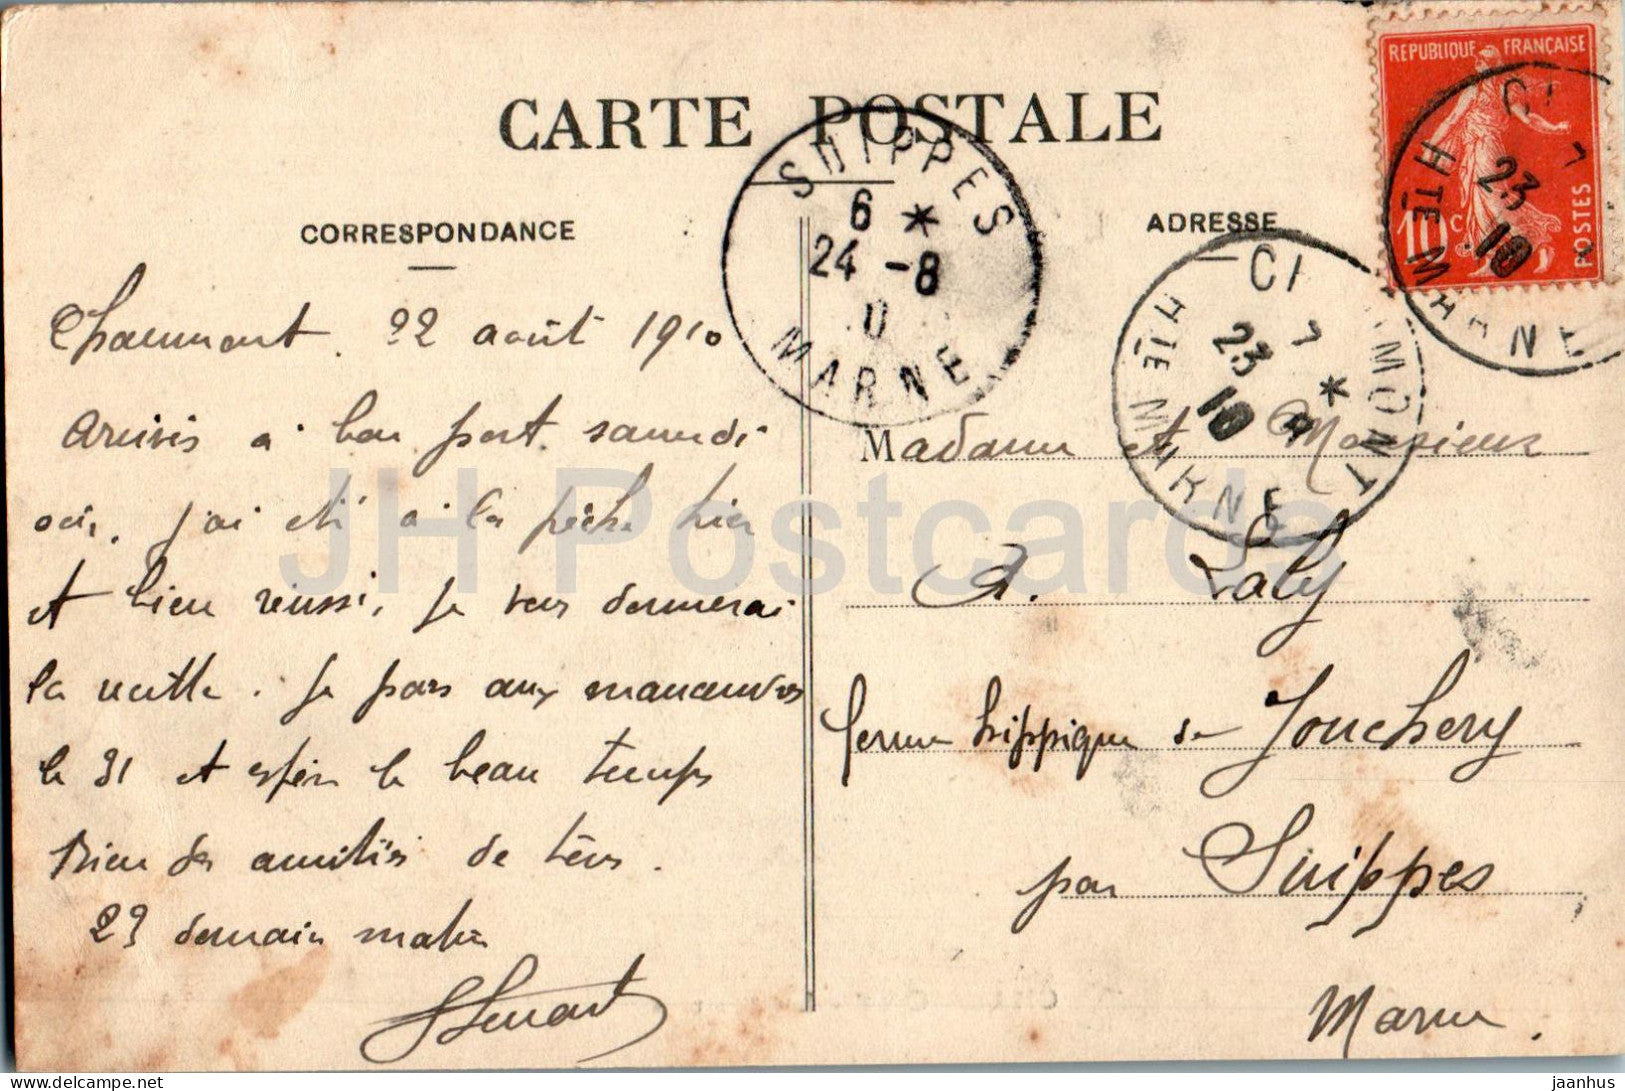 CARTE POSTALE
CORRESPONDANCE
Chaumont. 22 août 1910
arrivés à bon port samedi
soir. j'ai été à la pêche hier
et bien réussi, je vous donnerai
la recette. Je pars aux manœuvres
le 31 et espère le beau temps
Bien des amitiés de tous.
23 demain matin
ADRESSE
Madame et Monsieur
A. Laby
ferme hippique de Jouchery
par Suippes
Marne.
SUIPPES
6 *
24 -8
MARNE
CHAUMONT
7 *
23 8
10
HTE MARNE
REPUBLIQUE FRANÇAISE
10 c POSTES
7
23
10
HTE MARNE
JH Postcards
jaanhus
delcampe.net